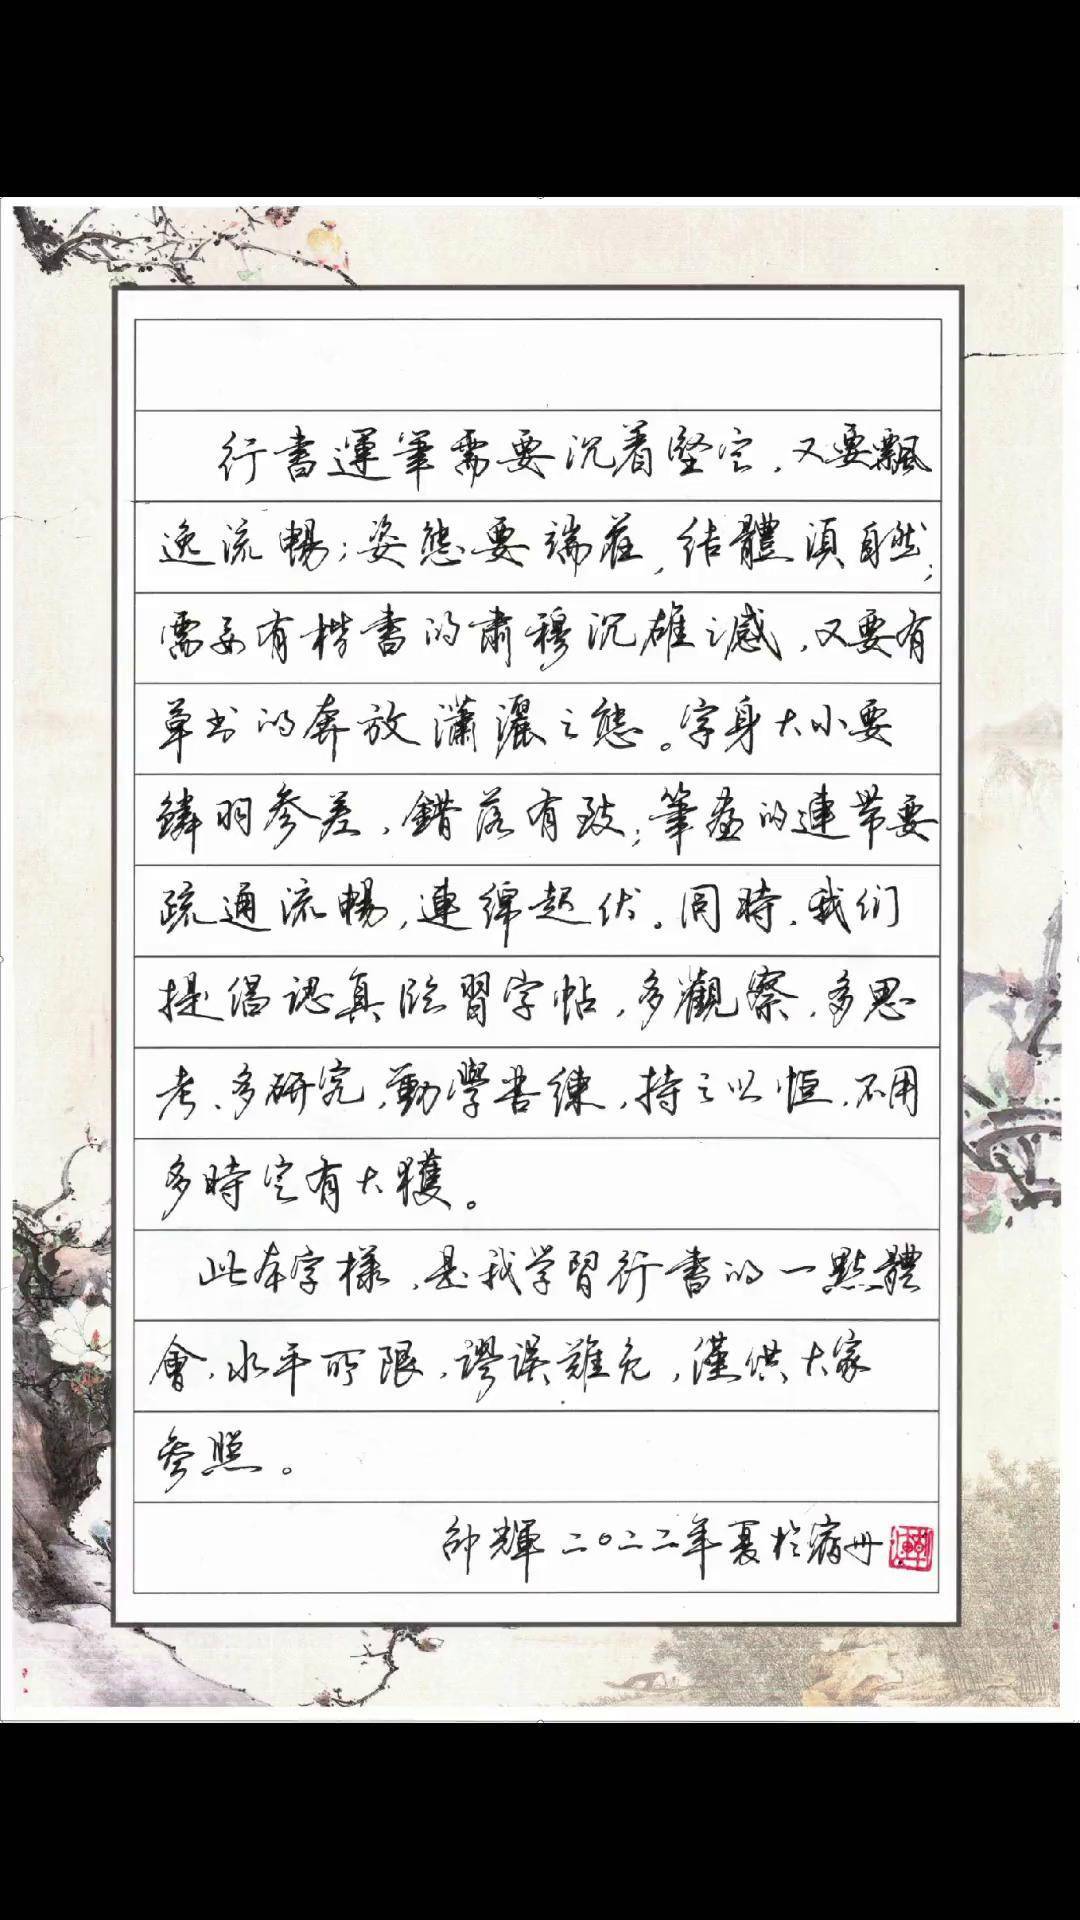 行書運筆需要沉着堅定，又要飄
逸流暢；姿態要端莊，結體須自然；
需要有楷書的肅穆沉雄之感，又要有
草书的奔放瀟灑之態。字身大小要
鱗羽參差，錯落有致；筆畫的連帶要
疏通流暢，連綿起伏。同時，我们
提倡認真临習字帖，多觀察，多思
考、多研究，勤學善練，持之以恒，不用
多時定有大獲。
此本字樣，是我学習行書的一點體
會，水平所限，謬误難免，僅供大家
參照。
輝二〇二二年夏於